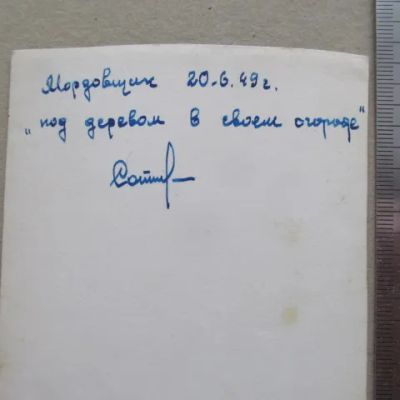 Мордовщик 20-6.49 г.
„под деревом в своем огороде"